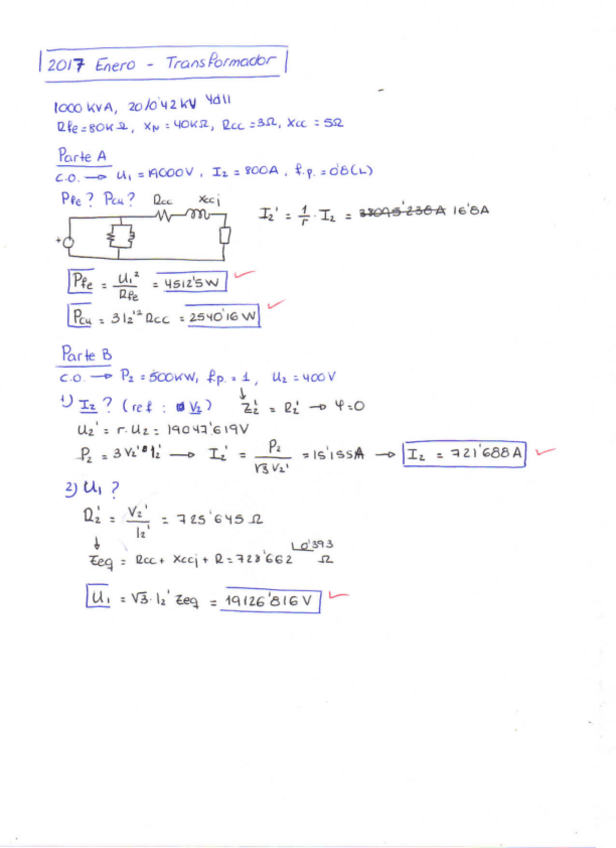 2017 Enero - Transformador
1000 KVA, 20/0'42 KV Yd11
RFe = 80KΩ, XM = 40KΩ, Rcc = 3Ω, Xcc = 5Ω
Parte A
C.O. → U1 = 19000V, I2 = 800A, f.p. = 0'8(L)
PFe? PCu? Rcc Xccj
I2' = 1/r · I2 = 16'8A
PFe = U1²/RFe = 4512'5W
PCu = 3I2'² Rcc = 2540'16W
Parte B
C.O. → P2 = 500KW, f.p. = 1, U2 = 400V
1) I2? (ref: V2) Z2' = R2' → φ=0
U2' = r·U2 = 19047'619V
P2 = 3V2' I2' → I2' = P2/√3 V2' = 15'155A → I2 = 721'688A
2) U1?
R2' = V2'/I2' = 725'645 Ω
Zeq = Rcc + Xccj + R = 728'662 ∟0'393 Ω
U1 = √3·I2' Zeq = 19126'816V